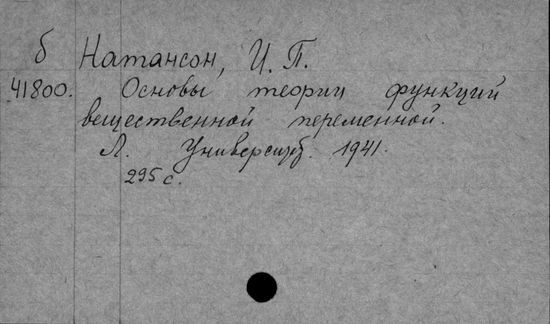 б Натансон, И. П.
41800. Основы теории функций
вещественной переменной.
Л. Университ. 1941.
295 с.